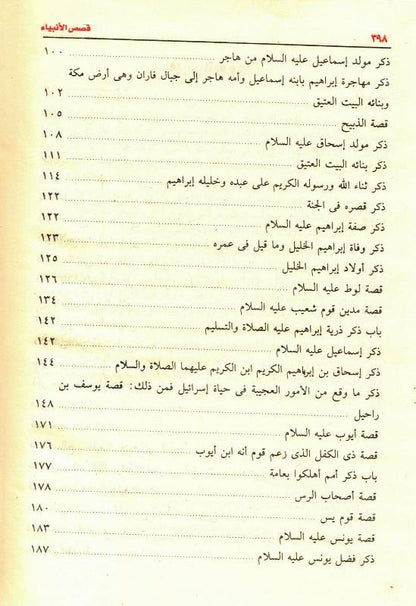 ٣٩٨ قصص الأنبياء
ذكر مولد إسماعيل عليه السلام من هاجر ١٠٠
ذكر مهاجرة إبراهيم بابنه إسماعيل وأمه هاجر إلى جبال فاران وهى أرض مكة
وبنائه البيت العتيق ١٠٢
قصة الذبيح ١٠٥
ذكر مولد إسحاق عليه السلام ١٠٨
ذكر بنائه البيت العتيق ١١١
ذكر ثناء الله ورسوله الكريم على عبده وخليله إبراهيم ١١٤
ذكر قصره فى الجنة ١٢٢
ذكر صفة إبراهيم عليه السلام ١٢٢
ذكر وفاة إبراهيم الخليل وما قيل فى عمره ١٢٣
ذكر أولاد إبراهيم الخليل ١٢٥
قصة لوط عليه السلام ١٢٦
قصة مدين قوم شعيب عليه السلام ١٣٤
باب ذكر ذرية إبراهيم عليه الصلاة والتسليم ١٤٢
ذكر إسماعيل عليه السلام ١٤٢
ذكر إسحاق بن إبراهيم الكريم ابن الكريم عليهما الصلاة والسلام ١٤٤
ذكر ما وقع من الأمور العجيبة فى حياة إسرائيل فمن ذلك: قصة يوسف بن
راحيل ١٤٨
قصة أيوب عليه السلام ١٧١
قصة ذى الكفل الذى زعم قوم أنه ابن أيوب ١٧٦
باب ذكر أمم أهلكوا بعامة ١٧٧
قصة أصحاب الرس ١٧٨
قصة قوم يس ١٨٠
قصة يونس عليه السلام ١٨٣
ذكر فضل يونس عليه السلام ١٨٧